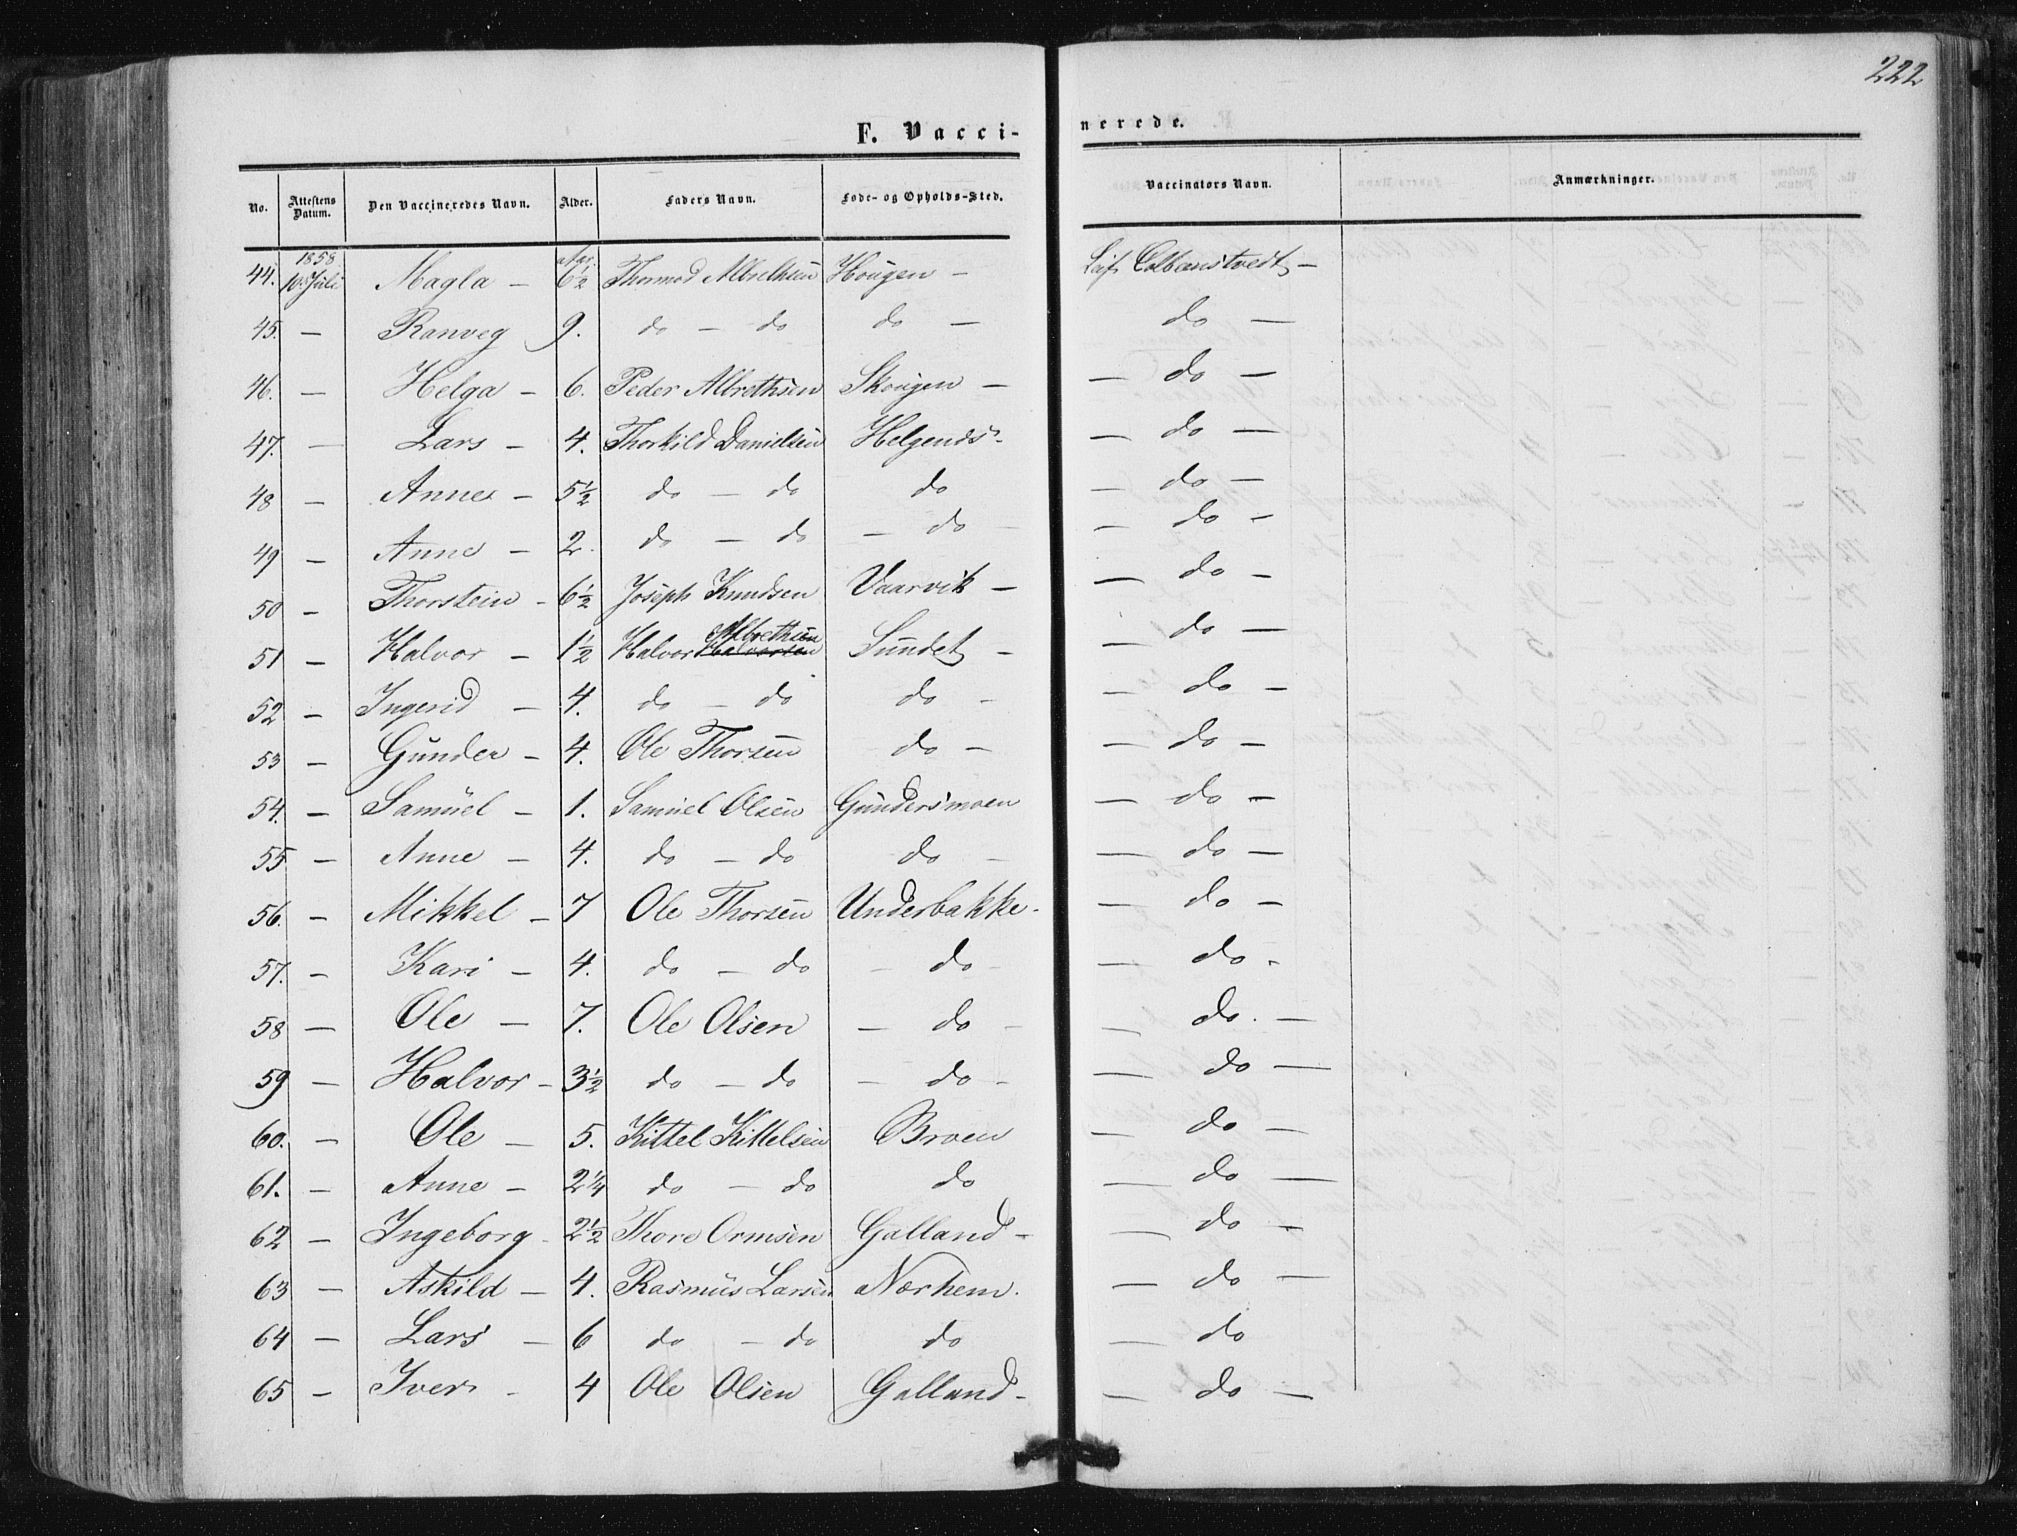 222
F. Vacci-nerede.
No. Attestens Datum. Den Vaccineredes Navn. Alder. Faders Navn. Føde- og Opholds-Sted. Vaccinators Navn. Anmærkninger.
44. 1858 10. Juli Magla - 6½ Thormod Albrethsen Hougen - Colbenstvedt -
45. - Ranveg 9. do - do do - do -
46. - Helga - 6. Peder Albrethsen Skougen - - do -
47. - Lars - 4. Thorkild Danielsen Helgends - - do -
48 - Anne - 5½ do - do do - do -
49 - Anne - 2. do - do - do - - do -
50 - Thorstein - 6½ Joseph Knudsen Vaarvik - - do -
51 - Halvor - 1½ Halvor Halvorsen Albrethsen Sundet - - do -
52 - Ingerid - 4. do - do do - - do -
53 - Gunder - 4. Ole Thorsen do - - do -
54. - Samuel - 1. Samuel Olsen Gundersmoen - do -
55 - Anne - 4. do - do do - - do -
56. - Mikkel - 7 Ole Thorsen Underbakke - - do -
57. - Kari - 4. do - do - do - - do -
58 - Ole - 7. Ole Olsen - do - - do. -
59 - Halvor - 3½ do - do - do - - do -
60. - Ole - 5. Kittel Kittelsen Broen - do -
61. - Anne - 2¼ do - do do - do -
62 - Ingeborg - 2½ Thore Ormsen Galland - - do -
63 - Askild - 4. Rasmus Larsen Nørhem. - do -
64 - Lars - 6 do - do do - do
65 - Iver - 4 Ole Olsen Galland - - do -